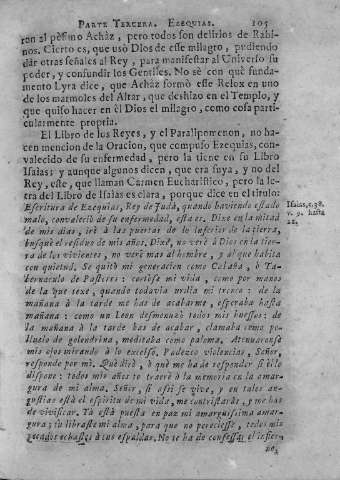 PARTE TERCERA. EZEQUIAS. 105
ron al pèssimo Achàz, pero todos son delirios de Rabi-
nos. Cierto es, que usò Dios de este milagro, pudiendo
dàr otras señales al Rey, para manifestar al Universo su
poder, y confundir los Gentiles. No sè con què funda-
mento Lyra dice, que Achàz formò este Relox en uno
de los marmoles del Altar, que deshizo en el Templo, y
que quiso hacer en èl Dios el milagro, como cosa parti-
cularmente propria.
El Libro de los Reyes, y el Paralipomenon, no ha-
cen mencion de la Oracion, que compuso Ezequias, con-
valecido de su enfermedad, pero la tiene en su Libro
Isaias; y aunque algunos dicen, que era suya, y no del
Rey, este, que llaman Carmen Eucharistico, pero la le-
tra del Libro de Isaias es clara, porque dice en el titulo:
Escritura de Ezequias, Rey de Judà, quando haviendo estado
malo, convaleciò de su enfermedad, esta es. Dixe en la mitad
de mis dias, irè à las puertas de lo inferior de la tierra,
busquè el residuo de mis años. Dixe, no verè à Dios en la tier-
ra de los vivientes, no verè mas al hombre, y al que habita
con quietud. Se quitò mi generacion como Cabaña, ò Ta-
bernaculo de Pastores: cortòse mi vida, como por manos
de la que texe, quando todavia urdia mi tronco: de la
mañana à la tarde me has de acabarme, esperaba hasta
mañana: como un Leon desmenuzò todos mis huessos: de
la mañana à la tarde has de acabar, clamaba como po-
lluelo de golondrina, meditaba como paloma. Atenuaronse
mis ojos mirando à lo excelso. Padezco violencias, Señor,
responde por mi. Què dirè, ò què me ha de responder si èl lo
dispone: todos mis años te traerè à la memoria en la amar-
gura de mi alma. Señor, si assi se vive, y en tales an-
gustias està el espiritu de mi vida, me contristaràs, y me has
de vivificar. Yà està puesta en paz mi amarguissima amar-
gura; tu libraste mi alma, para que no pereciesse, todos mis
pecados echaste à tus espaldas. No te ha de confessar el infier-
Isaias, c. 38.
v. 9. hasta
21.
no,